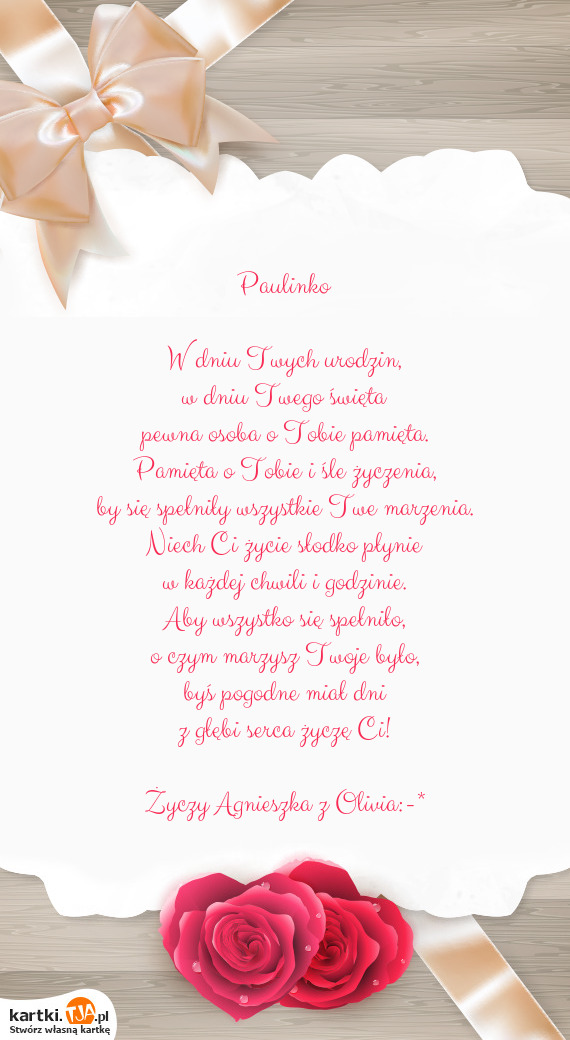 Paulinko
W dniu Twych urodzin,
w dniu Twego święta
pewna osoba o Tobie pamięta.
Pamięta o Tobie i śle życzenia,
by się spełniły wszystkie Twe marzenia.
Niech Ci życie słodko płynie
w każdej chwili i godzinie.
Aby wszystko się spełniło,
o czym marzysz Twoje było,
byś pogodne miał dni
z głębi serca życzę Ci!
Życzy Agnieszka z Olivia:-*
kartki.TJA.pl
Stwórz własną kartkę